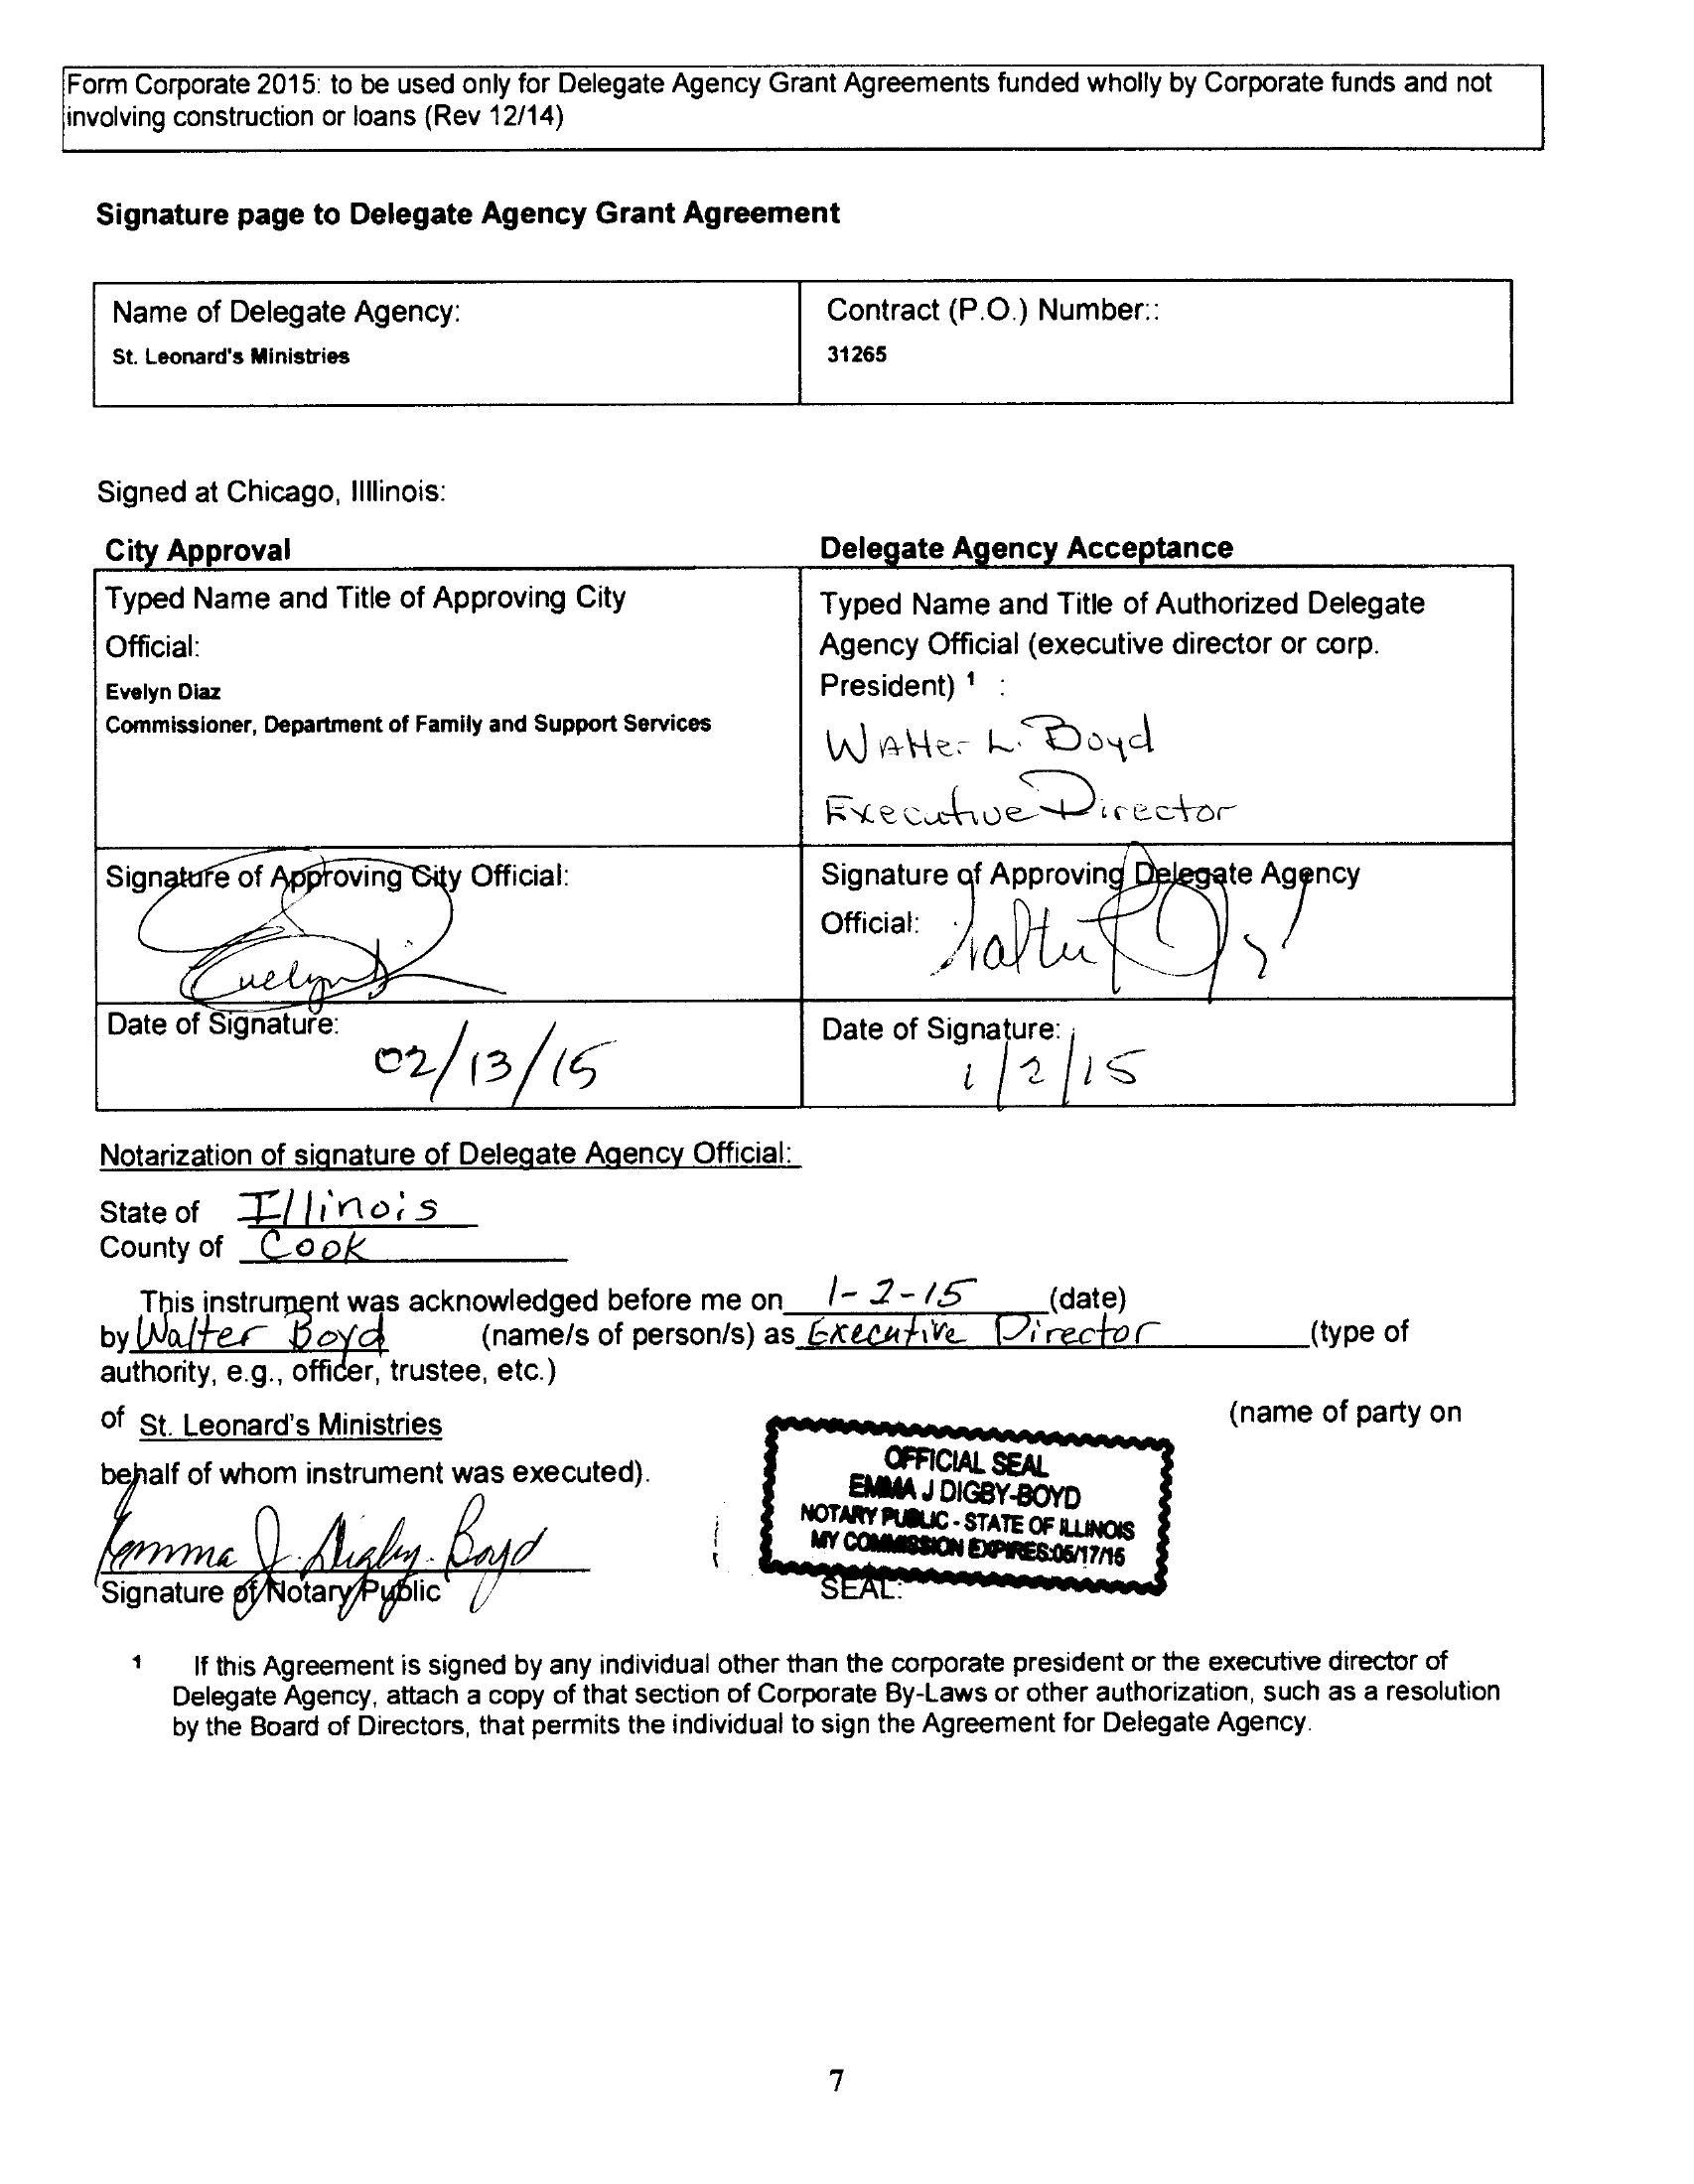 Form Corporate 2015: to be used only for Delegate Agency Grant Agreements funded wholly by Corporate funds and not
involving construction or loans (Rev 12/14)
Signature page to Delegate Agency Grant Agreement
Name of Delegate Agency:
St. Leonard's Ministries
Contract (P.O.) Number::
31265
Signed at Chicago, Illlinois:
City Approval
Typed Name and Title of Approving City
Official:
Evelyn Diaz
Commissioner, Department of Family and Support Services
Delegate Agency Acceptance
Typed Name and Title of Authorized Delegate
Agency Official (executive director or corp.
President) 1 :
Walter L. Boyd
Executive Director
Signature of Approving City Official:
Evelyn Di
Signature of Approving Delegate Agency
Official: Walter
Date of Signature:
02/13/15
Date of Signature:
1/2/15
Notarization of signature of Delegate Agency Official:
State of Illinois
County of Cook
This instrument was acknowledged before me on 1-2-15 (date)
by Walter Boyd (name/s of person/s) as Executive Director (type of
authority, e.g., officer, trustee, etc.)
of St. Leonard's Ministries (name of party on
behalf of whom instrument was executed).
Emma J. Digby-Boyd
Signature of Notary Public
OFFICIAL SEAL
EMMA J DIGBY-BOYD
NOTARY PUBLIC - STATE OF ILLINOIS
MY COMMISSION EXPIRES:05/17/15
SEAL:
1 If this Agreement is signed by any individual other than the corporate president or the executive director of
Delegate Agency, attach a copy of that section of Corporate By-Laws or other authorization, such as a resolution
by the Board of Directors, that permits the individual to sign the Agreement for Delegate Agency.
7